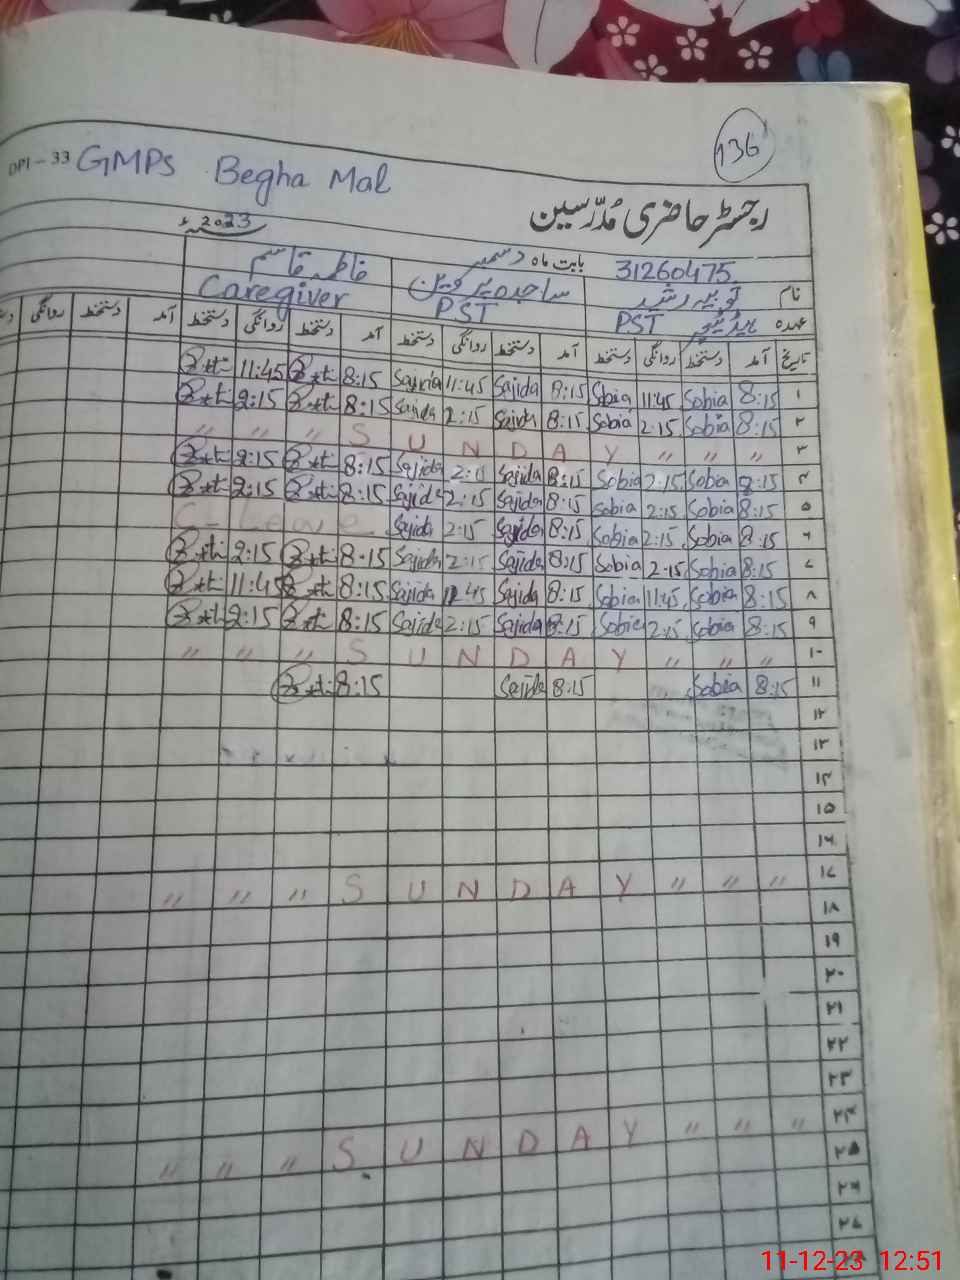 136
DPI - 33 GMPS Begha Mal
رجسٹر حاضری مُدرّسین
2023ء
31260475 بابت ماہ دسمبر
نام ثوبیہ رشید ساجدہ پروین فاطمہ قاسم
عہدہ ہیڈ ٹیچر PST PST Caregiver
تاریخ آمد دستخط روانگی دستخط آمد دستخط روانگی دستخط آمد دستخط روانگی دستخط آمد دستخط روانگی
۱ 8:15 Sobia 11:45 Sobia 8:15 Sajida 11:45 Sajida 8:15 11:45
۲ 8:15 Sobia 2:15 Sobia 8:15 Sajida 2:15 Sajida 8:15 2:15
۳ " " " S U N D A Y " " "
۴ 8:15 Sobia 2:15 Sobia 8:15 Sajida 2:15 Sajida 8:15 2:15
۵ 8:15 Sobia 2:15 Sobia 8:15 Sajida 2:15 Sajida 8:15 2:15
۶ 8:15 Sobia 2:15 Sobia 8:15 Sajida 2:15 Sajida C- Leave
۷ 8:15 Sobia 2:15 Sobia 8:15 Sajida 2:15 Sajida 8:15 2:15
۸ 8:15 Sobia 11:45 Sobia 8:15 Sajida 11:45 Sajida 8:15 11:45
۹ 8:15 Sobia 2:15 Sobia 8:15 Sajida 2:15 Sajida 8:15 2:15
۱۰ " " " S U N D A Y " " "
۱۱ 8:15 Sobia 8:15 Sajida 8:15
۱۲
۱۳
۱۴
۱۵
۱۶
۱۷ " " " S U N D A Y " " "
۱۸
۱۹
۲۰
۲۱
۲۲
۲۳
۲۴ " " " S U N D A Y " " "
۲۵
۲۶
۲۷
۲۸
11-12-23 12:51